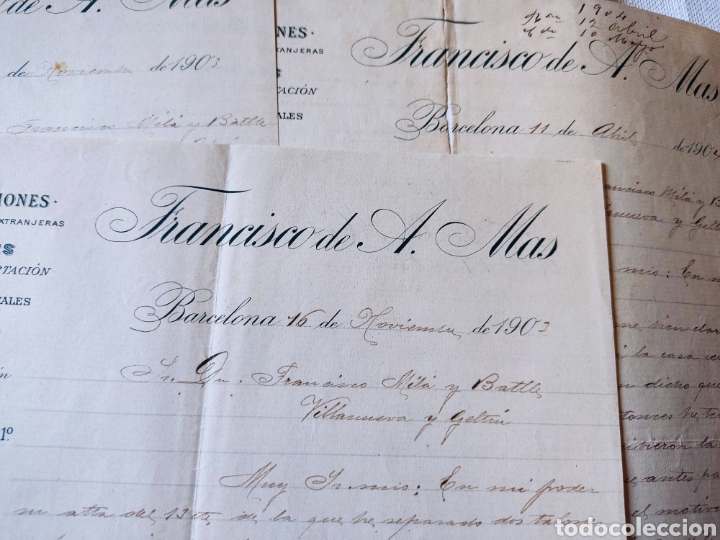 de A. Mas
de Noviembre de 1903
Francisco Milá y Batlle
1904
12 Abril
10 Mayo
Francisco de A. Mas
Barcelona 11 de Abril de 190
IONES.
EXTRANJERAS
TACIÓN
ALES
Francisco Milá y B
Villanueva y Gelt
mio: En m
la casa
dicho que
entonces he
antes pa
el motivo
IONES.
EXTRANJERAS
RTACIÓN
CALES
1º
Francisco de A. Mas
Barcelona 16 de Noviembre de 1903
Sr. Dn. Francisco Milá y Batlle
Villanueva y Geltrú
Muy Sr. mio: En mi poder
su atta del 13 cte, de la que he separado dos talon
todocoleccion